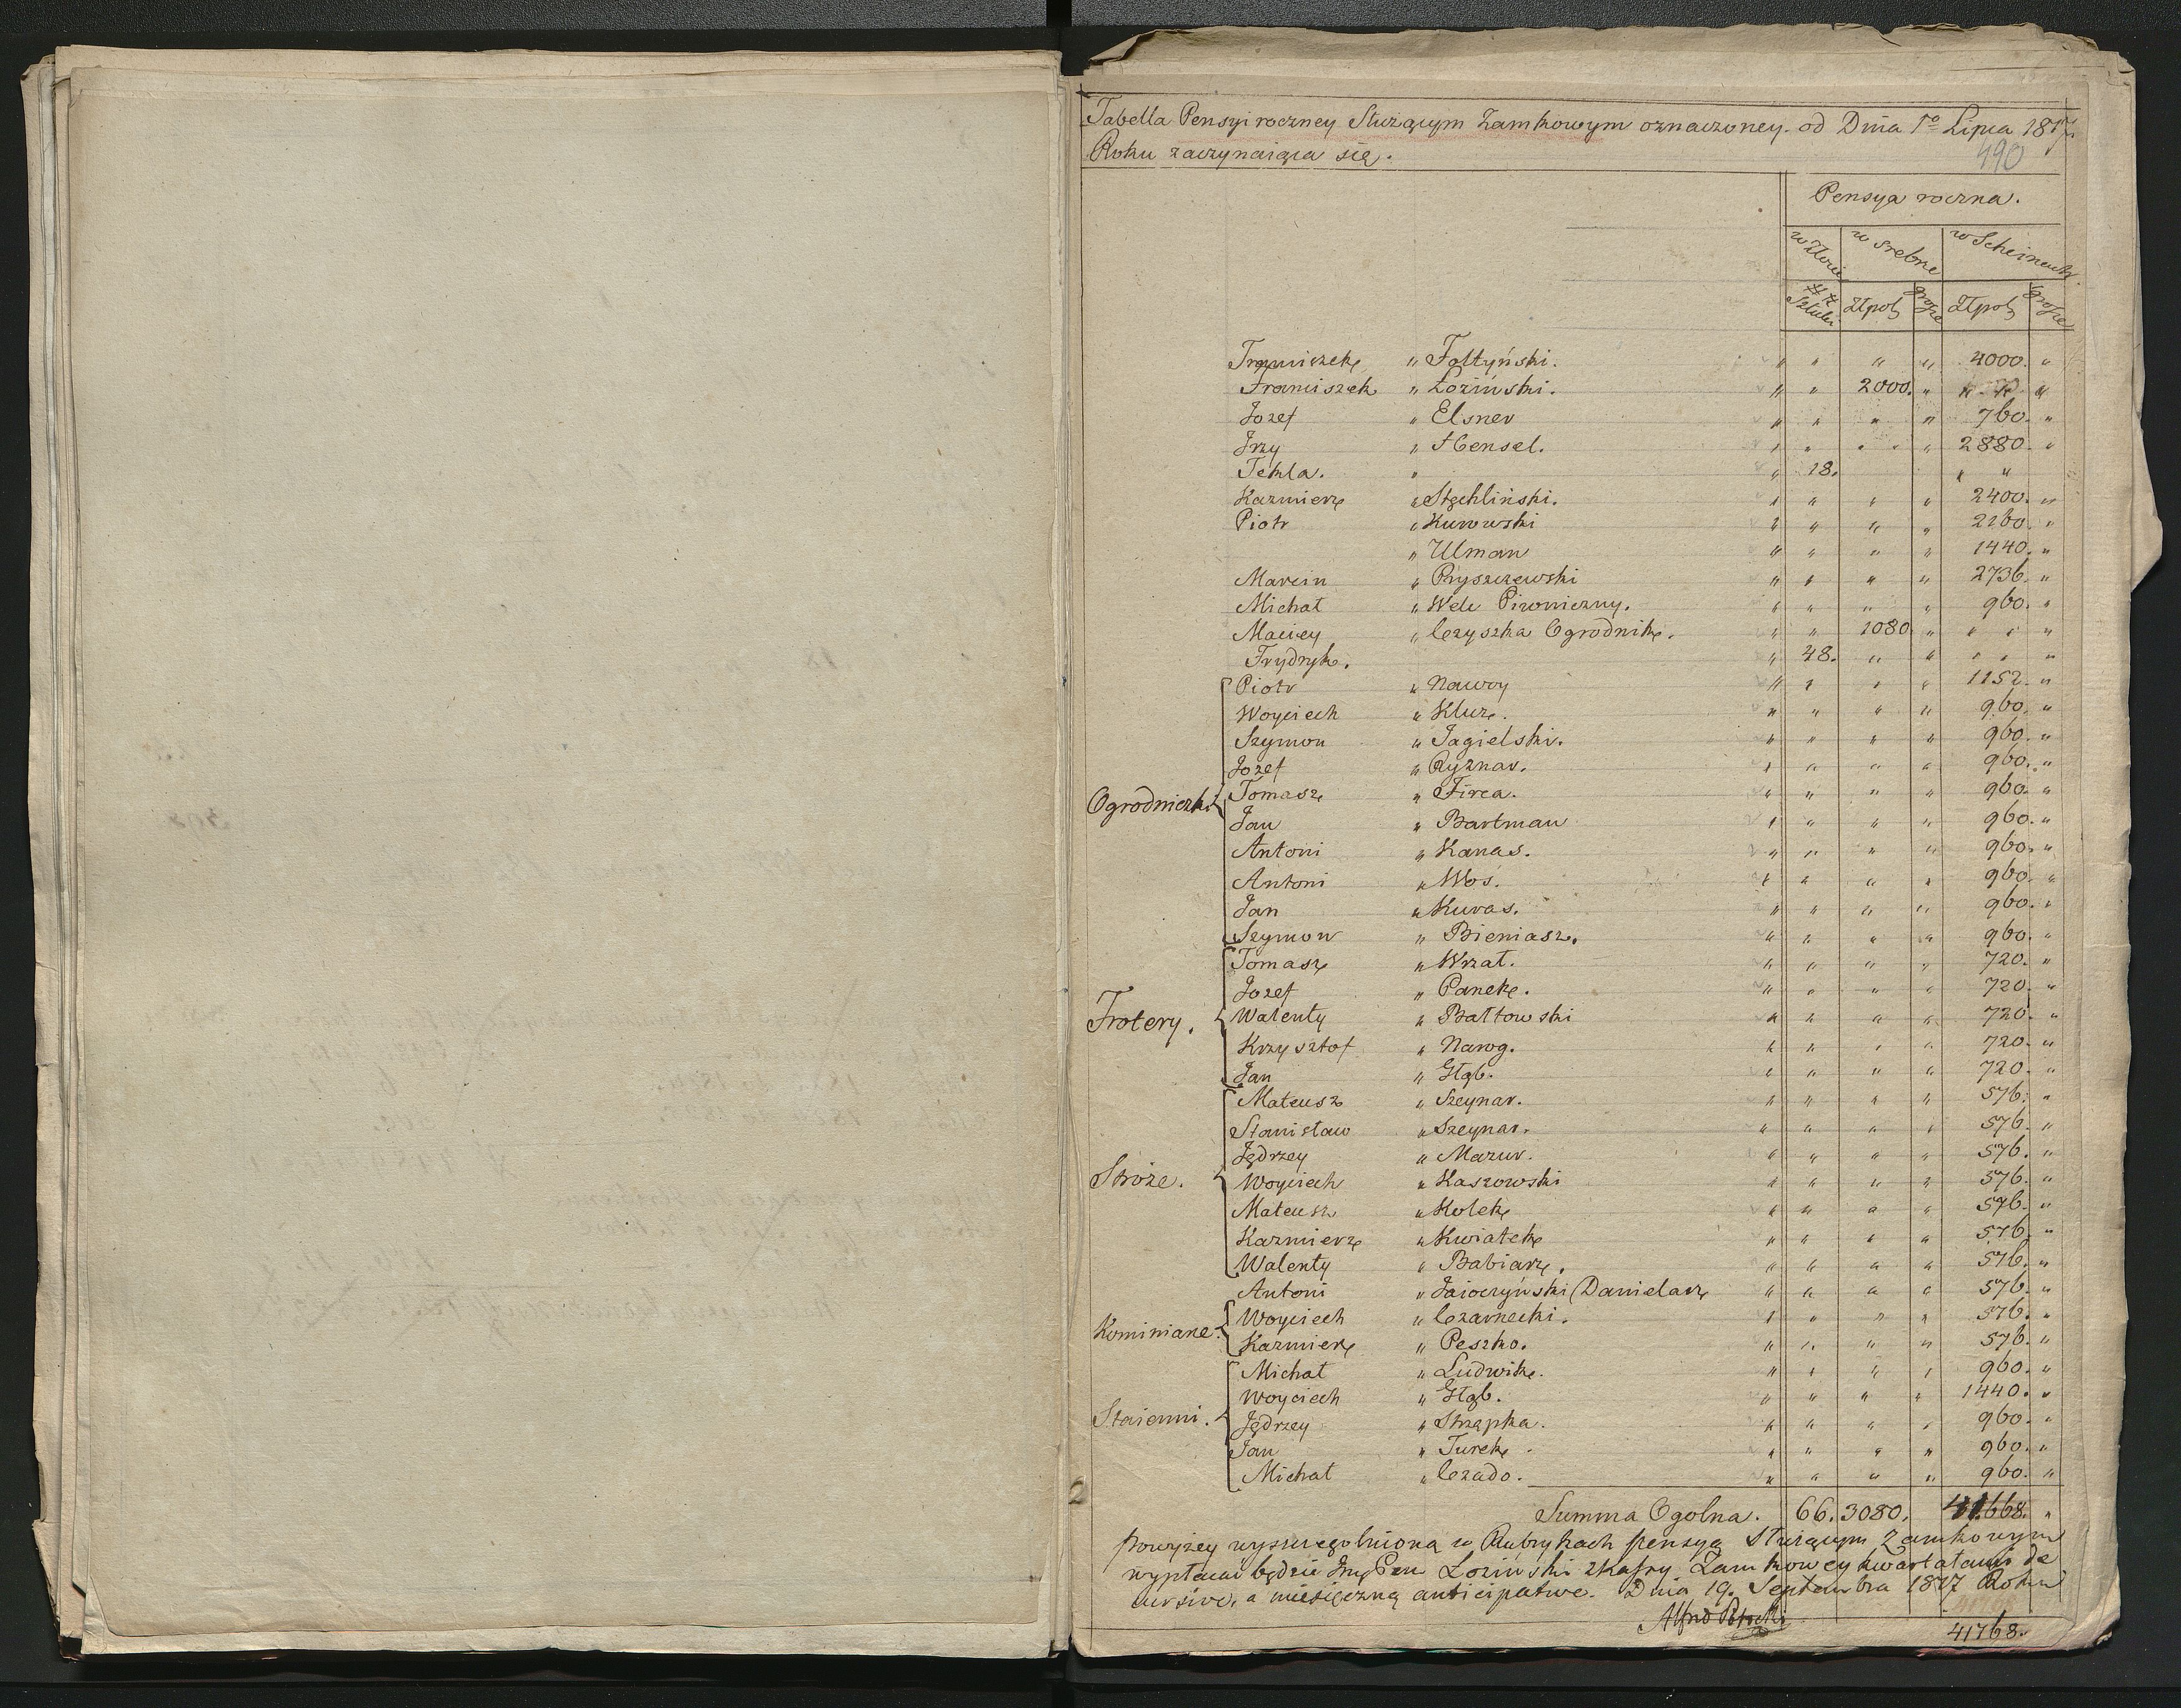 Tabella Pensyi roczney Służącym Zamkowym oznaczoney od Dnia 1º Lipca 1817
Roku zaczynaiąca się.
490
Pensya roczna.
w Złocie w srebrze w Scheinach
## Sztuki Złpol grosze Złpol grosze
Franciszek " Foltyński. " " " " 4000. "
Franciszek " Łoziński. " " 2000. " " " "
Jozef " Elsner " " " " 760. "
Jrzy " Hensel. " " " " 2880. "
Tekla. " " 18. " "
Kazmierz " Stęchliński. " " " " 2400. "
Piotr " Kurowski " " " " 2160. "
" Ulman " " " " 1440. "
Marcin " Pryszczewski " " " " 2736. "
Michał " Piwniczny. " " " " 960. "
Maciey " Czyszka Ogrodnik. " " 1080 " " " "
Frydryk. " 48. " " " " "
Piotr " Nawoy " " " " 1152. "
Woyciech " Kluz. " " " " 960. "
Szymon " Jagielski. " " " " 960. "
Jozef " Ryznar. " " " " 960. "
Ogrodniczki Tomasz " Firca. " " " " 960. "
Jan " Bartman " " " " 960. "
Antoni " Kanas. " " " " 960. "
Antoni " Wos. " " " " 960. "
Jan " Kuras. " " " " 960. "
Szymon " Bieniasz. " " " " 960. "
Tomasz " Wrzat. " " " " 720. "
Jozef " Panek. " " " " 720. "
Frotery. Walenty " Bałtowski " " " " 720. "
Krzysztof " Narog. " " " " 720. "
Jan " Głąb. " " " " 720. "
Mateusz " Szeynar. " " " " 576. "
Stanisław " Szeynar. " " " " 576. "
Jędrzey " Mazur. " " " " 576. "
Stróże. Woyciech " Kaszowski " " " " 576. "
Mateusz " Kolek " " " " 576. "
Kazmierz " Kwiatek " " " " 576. "
Walenty " Babiarz. " " " " 576. "
Antoni " Jaioczyński (Danielacz " " " " 576. "
Kominiarze. Woyciech " Czarnecki. " " " " 576. "
Kazmierz " Peszko. " " " " 576. "
Michał " Ludwik. " " " " 960. "
Woyciech " Głąb. " " " " 1440. "
Staienni. Jędrzey " Strzępka. " " " " 960. "
Jan " Turek. " " " " 960. "
Michał " Czado. " " " " 960. "
Summa Ogolna. 66. 3080. 41668. "
powyżey wyszczegolnioną w Rubrykach pensyą Służącym Zamkowym
wypłacać będzie Pan Łoziński z Kassy Zamkowey kwartałami de
cursive, a miesięczną anticipative. Dnia 19. Septembra 1817 Roku
Alfred Potocki
41768.